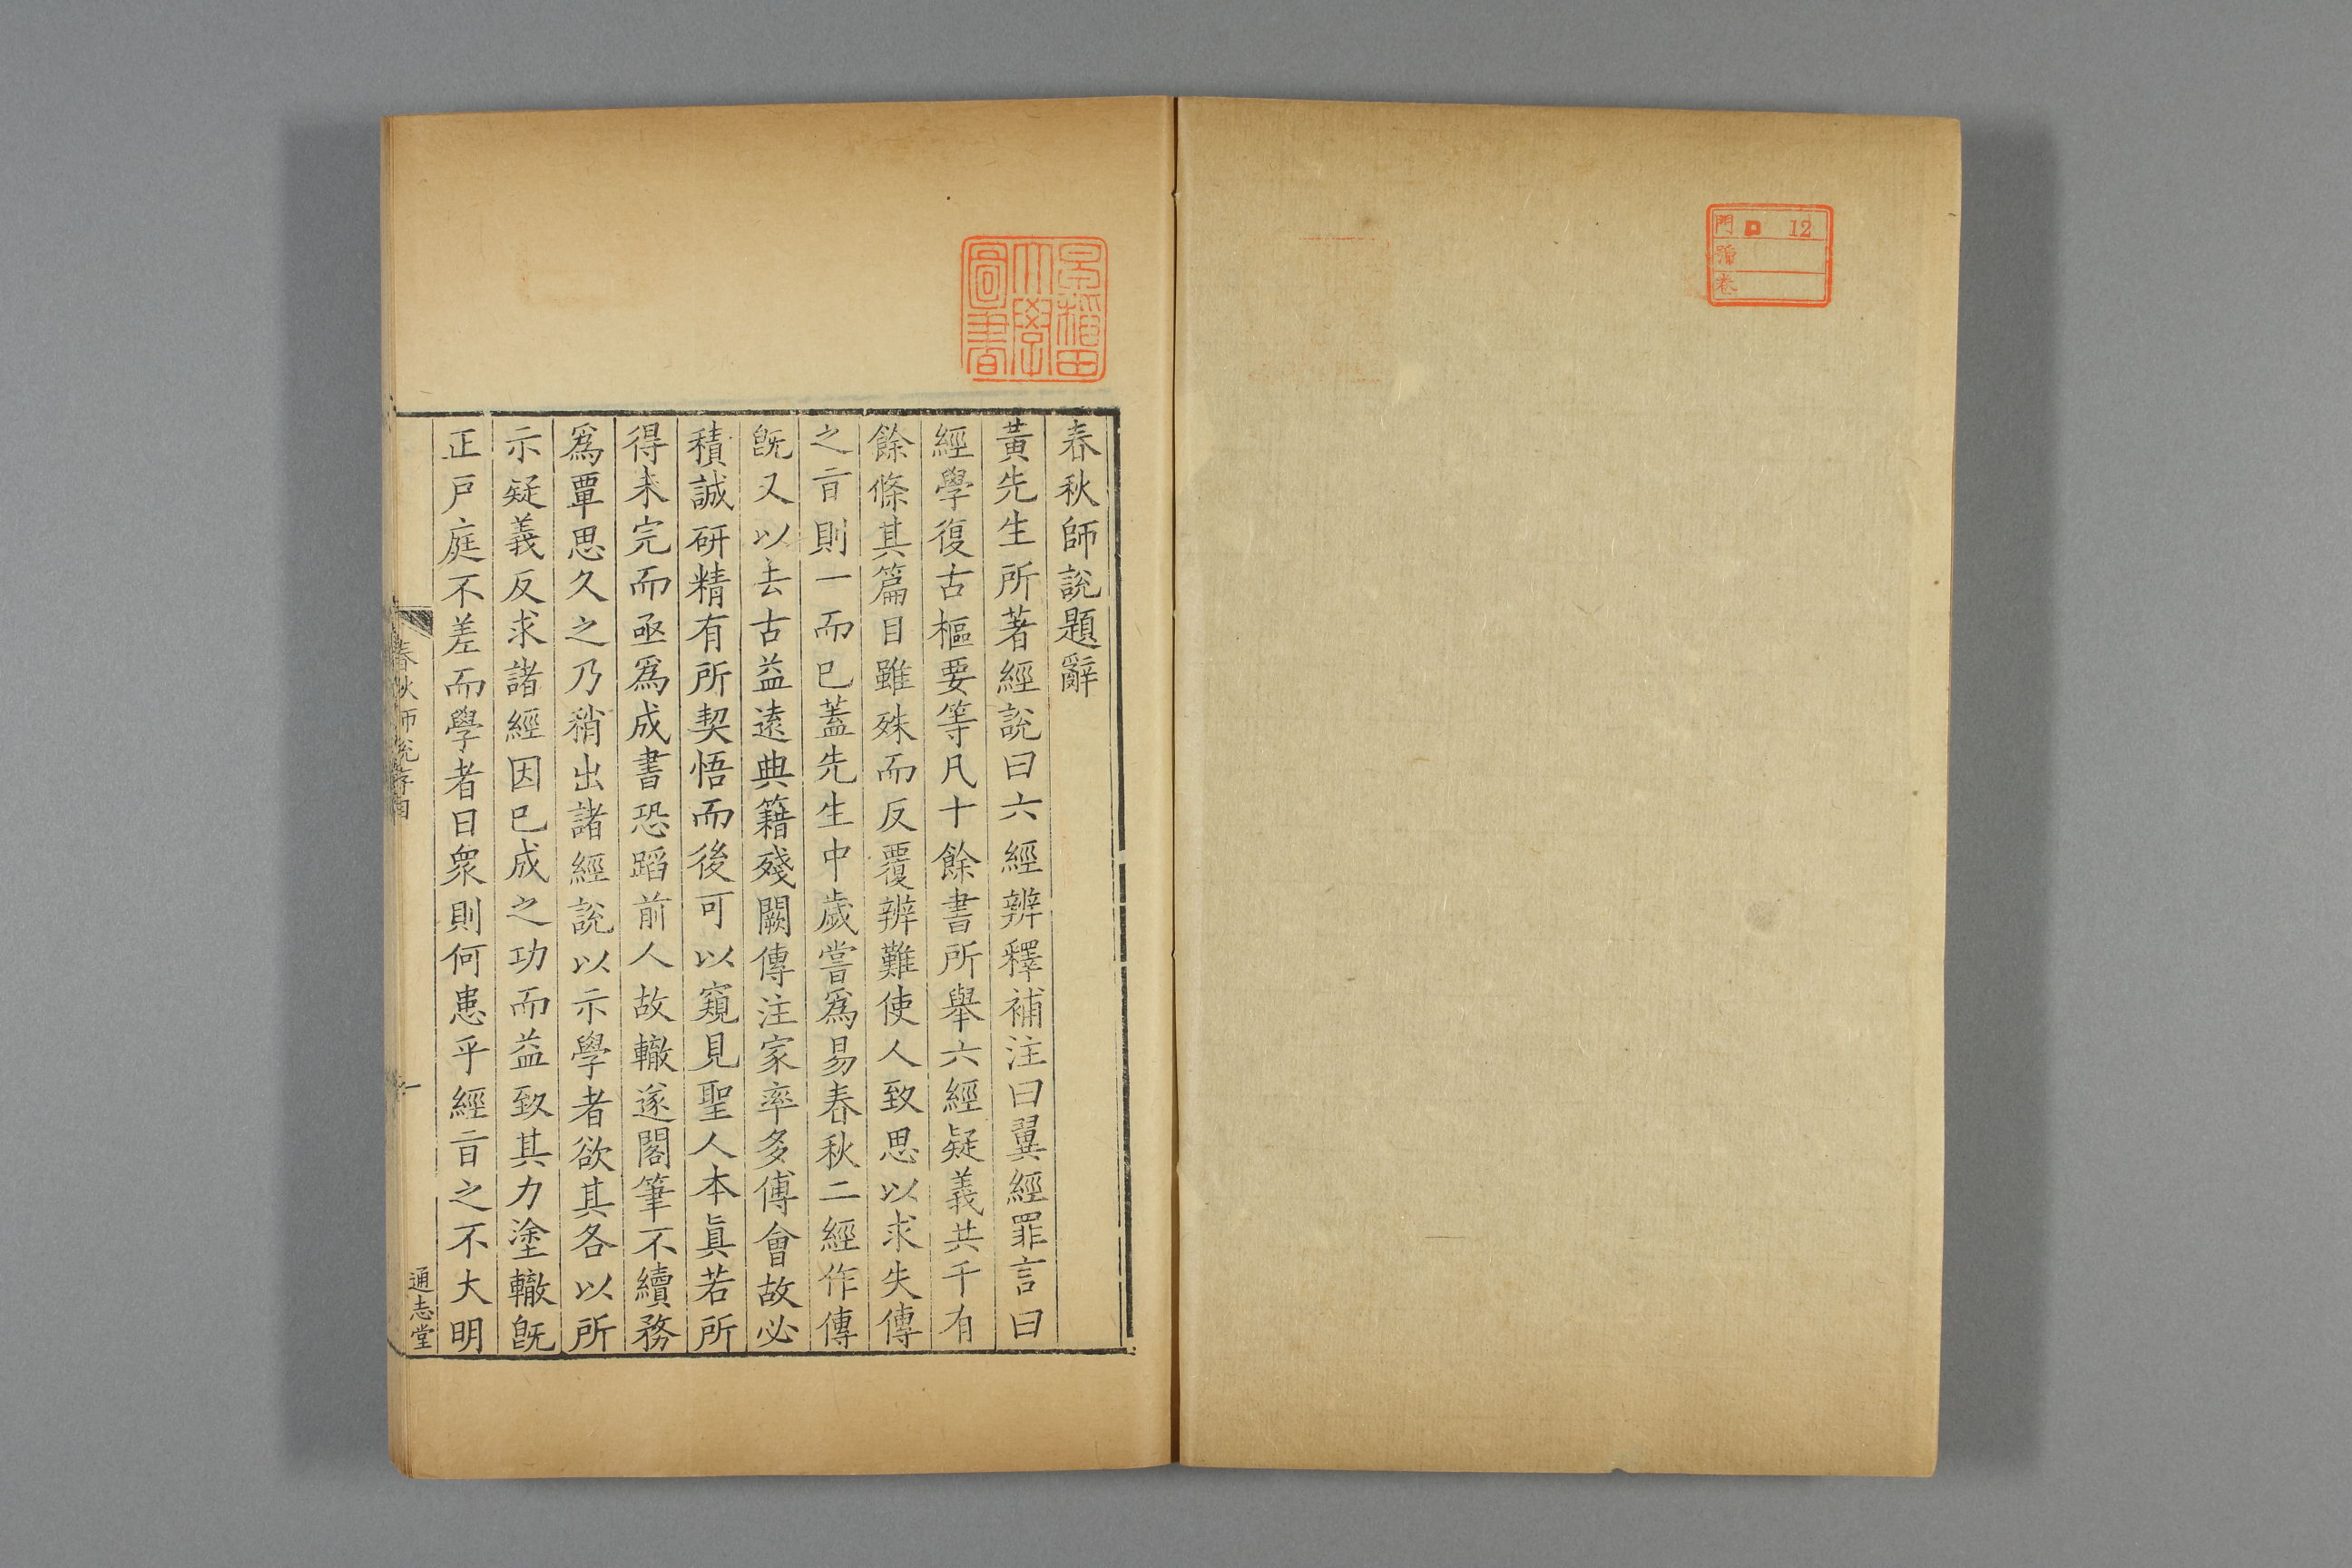 門 ロ 12
號
卷
早稻田
大學
圖書
春秋師說題辭
黃先生所著經說曰六經辨釋補注曰翼經罪言曰
經學復古樞要等凡十餘書所舉六經疑義共千有
餘條其篇目雖殊而反覆辨難使人致思以求失傳
之㫖則一而已蓋先生中歲嘗爲易春秋二經作傳
旣又以去古益遠典籍殘闕傳注家率多傅會故必
積誠硏精有所契悟而後可以窺見聖人本眞若所
得未完而亟爲成書恐蹈前人故轍遂閣筆不續務
爲覃思久之乃稍出諸經說以示學者欲其各以所
示疑義反求諸經因已成之功而益致其力塗轍旣
正戶庭不差而學者日衆則何患乎經㫖之不大明
春秋師說序
一
通志堂